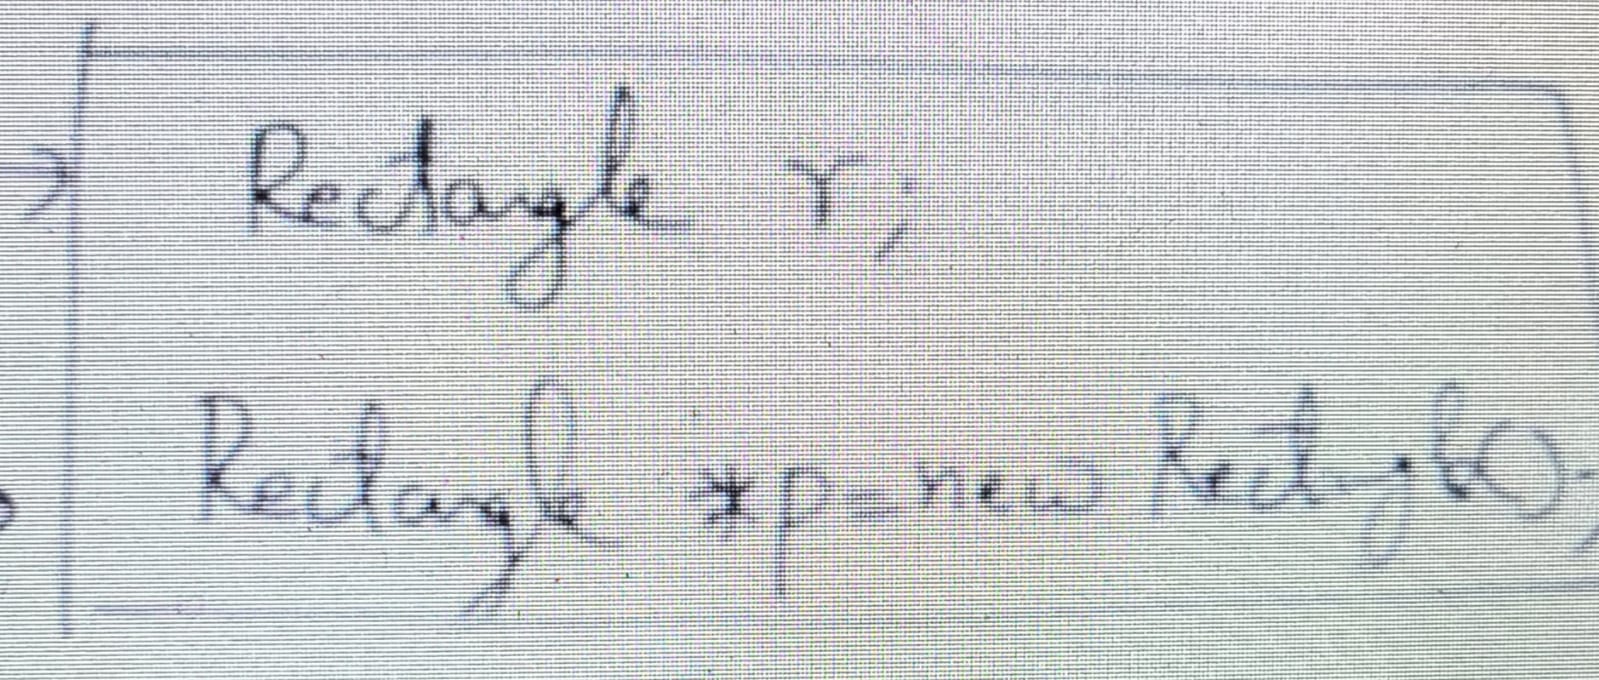 Rectangle r;
Rectangle *p=new Rectangle();